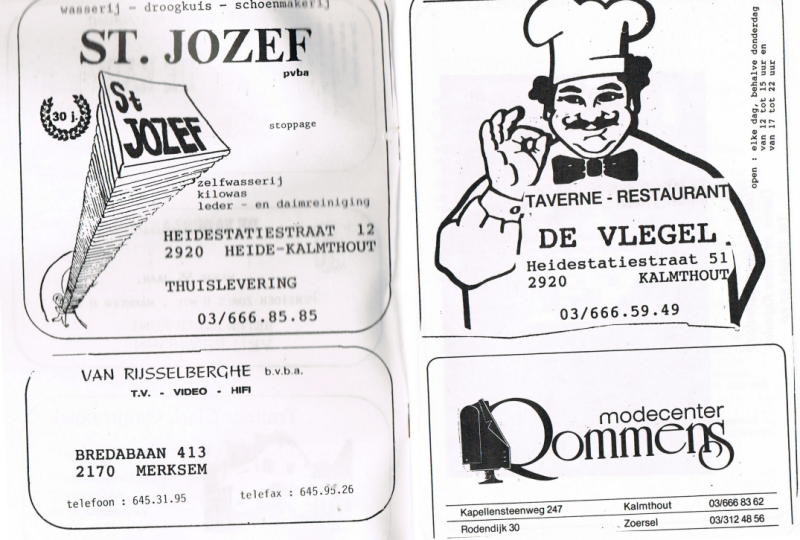 wasserij - droogkuis - schoenmakerij
ST. JOZEF
pvba
30 j.
St
JOZEF
stoppage
zelfwasserij
kilowas
leder - en daimreiniging
HEIDESTATIESTRAAT 12
2920 HEIDE-KALMTHOUT
THUISLEVERING
03/666.85.85
VAN RIJSSELBERGHE b.v.b.a.
T.V. - VIDEO - HIFI
BREDABAAN 413
2170 MERKSEM
telefoon : 645.31.95 telefax : 645.95.26
open : elke dag, behalve donderdag
van 12 tot 15 uur en
van 17 tot 22 uur
TAVERNE - RESTAURANT
DE VLEGEL
Heidestatiestraat 51
2920 KALMTHOUT
03/666.59.49
modecenter
Rommens
Kapellensteenweg 247 Kalmthout 03/666 83 62
Rodendijk 30 Zoersel 03/312 48 56